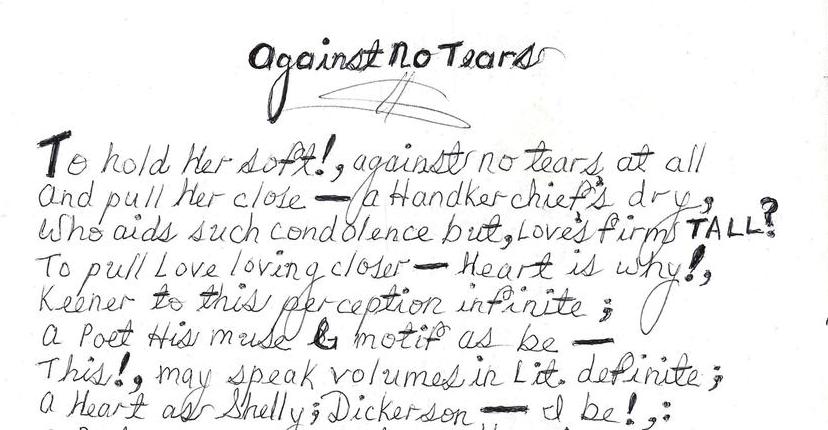 Against No Tears
To hold Her soft!, against no tears, at all
And pull Her close — a Handkerchief's dry,
Who aids such condolence but, Love's firm, TALL?
To pull Love loving closer — Heart is why!,
Keener to this perception infinite;
A Poet His muse & motif as be —
This!, may speak volumes in Lit. definite;
A Heart as Shelly; Dickerson — I be!,: